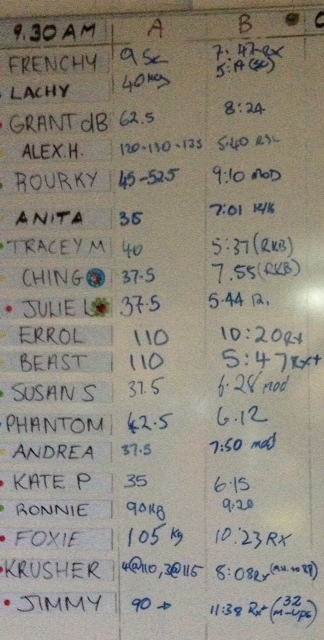 9.30 AM A B
FRENCHY 9 Sc 7:47 Rx
5:19 (sc)
LACHY 40kg
GRANT dB 62.5 8:24
ALEX.H. 120-130-135 5:40
ROURKY 45-52.5 9:10 mod
ANITA 35 7:01
TRACEY M 40 5:37 (RKB)
CHING 37.5 7.55 (RKB)
JULIE L 37.5 5.44
ERROL 110 10:20 Rx
BEAST 110 5:47 Rx+
SUSAN S 37.5 6.28 mod
PHANTOM 42.5 6.12
ANDREA 37.5 7:50 mod
KATE P 35 6:15
RONNIE 90kg 9:20
FOXIE 105 kg 10:23 RX
KRUSHER 4@110, 3@115 8:08 Rx
JIMMY 90 → 11:38 Rx+ (32 m-ups)